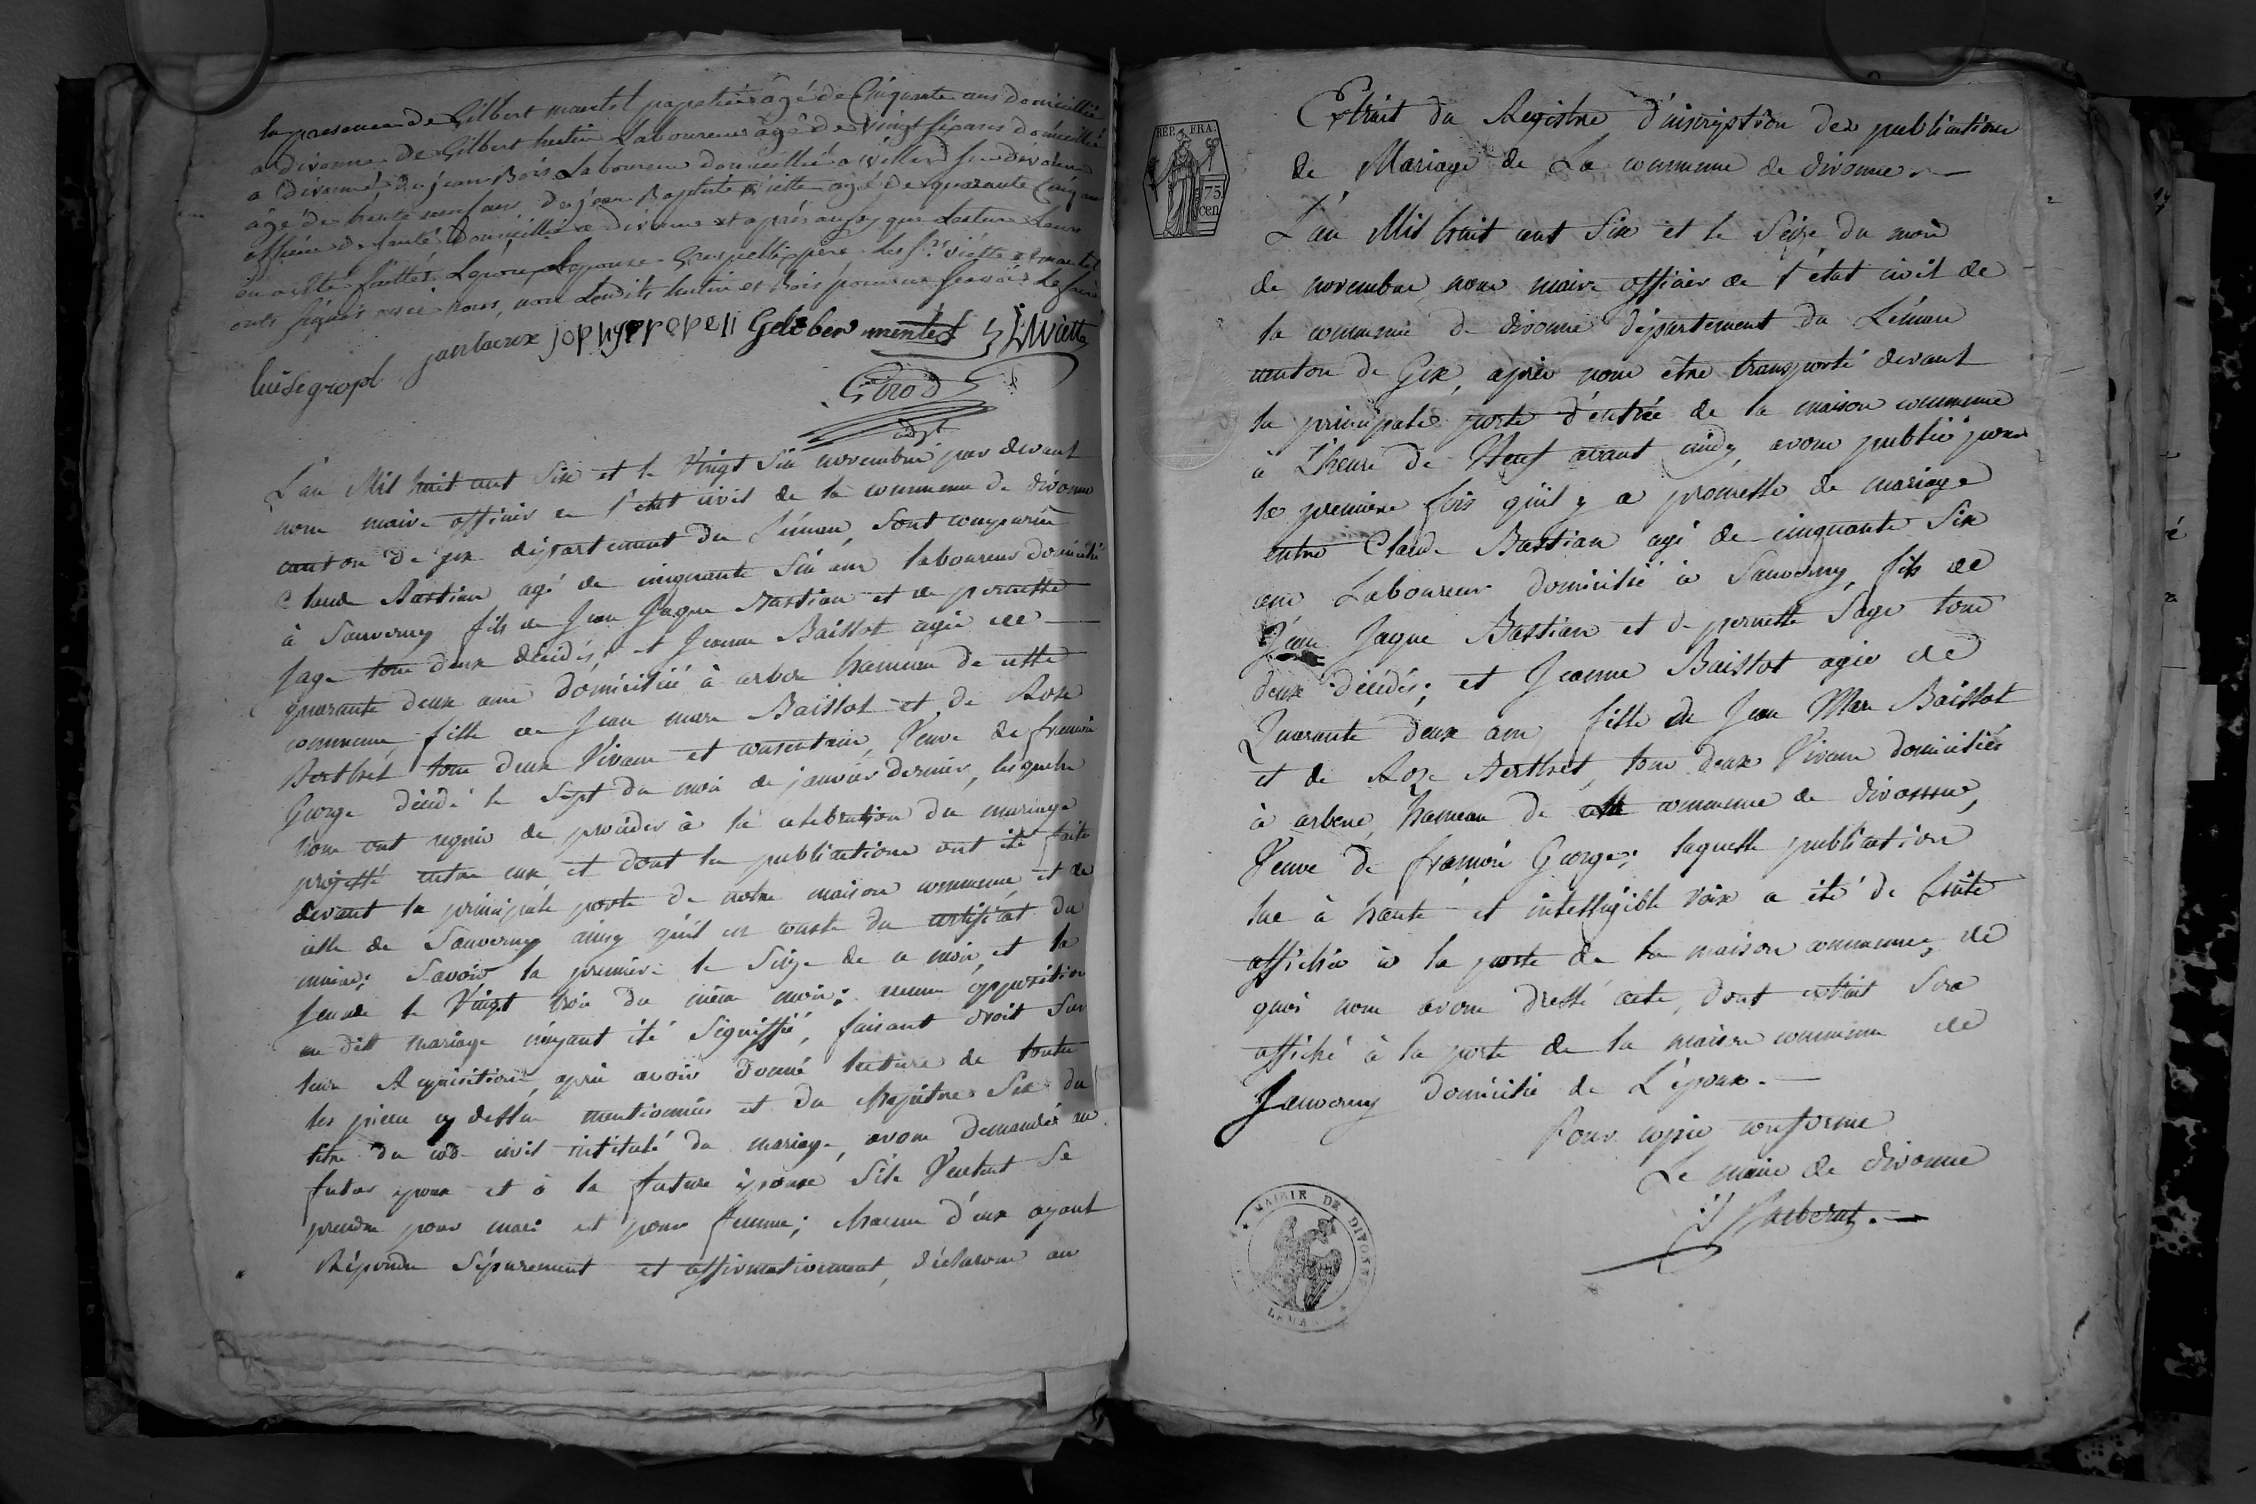 la presence de Gilbert mantel papetier âgé de Cinquante ans domicillié
a divonne de Gilbert hutin Laboureur âgé de vingt six ans domicillié
a divonne, de jean Bois Laboureur domicillié a villard sur divonne
âgé de trente neuf ans, de jean Baptiste viette agé de quarante Cinq ans
officier de santé domicillié a divonne et après aussy que Lecture Leurs
en a été faitte, Lepoux, Lepouse, Grospelli père Les Srs viette et mantel
onts signés avec nous, non Lesdits hutin et Bois pour ne savoir Le faire
luise gropl janlacrex josph gropeli Gilber mentel J B Viette
Girod
adjt
L'an Mil huit cent Six et le Vingt Six novembre par devant
nous maire officier de l'état civil de la commune de divonne
canton de gex département du Léman, Sont comparu
Claude Bastian agé de cinquante Six ans laboureur domicilié
à Sauverny fils de Jean Jaque Bastian et de pernette
Sage tous deux décédés, et Jeanne Baistot agée de
quarante deux ans domiciliée à arbere hameau de cette
commune, fille de Jean marc Baistot et de Rose
Berthet tous deux Vivans et consentans, Veuve de françois
George décédé le Sept du mois de janvier dernier, lesquels
nous ont requis de procéder à la célébration du mariage
projetté entre eux et dont les publications ont été faite
devant la principale porte de notre maison commune et de
celle de Sauverny ainsy qu'il en conste du certificat du
maire; Savoir la premiere le Seize de ce mois, et la
Seconde le Vingt trois du même mois; aucune opposition
au dit mariage n'ayant été Signiffié, faisant droit Sur
leur Réquisition, après avoir donné lecture de toutes
les pieces cy dessus mentionnées et du chapitre Six du
titre du code civil intitulé du mariage, avons demandés au
futur epoux et à la future épouse S'ils Veulent Se
prendre pour mari et pour femme; chacun d'eux ayant
Répondu Séparement et affirmativement, déclarons au
REP. FRA.
75
cen
Extrait du Registre d'inscription des publications
de Mariage de La commune de divonne.
L'an Mil huit cent Six et le Seize du mois
de novembre nous maire officier de l'état civil de
la commune de divonne département du Léman
canton de Gex, après nous être transporté devant
la principale porte d'entrée de la maison commune
à L'heure de Neuf avant midy, avons publié pour
la premiere fois qu'il y a promesse de mariage
entre Claude Bastian agé de cinquante Six
ans Laboureur domicilié à Sauverny, fils de
Jean Jaque Bastian et de pernette Sage tous
deux décédés; et Jeanne Baistot agée de
Quarante deux ans fille de Jean Marc Baistot
et de Roze Berthet, tous deux Vivans domiciliés
à arbere, hameau de cette commune de divonne,
Veuve de françois George; laquelle publication
lue à haute et intelligible voix a été de suite
affichée à la porte de la maison commune, de
quoi nous avons dressé acte, dont extrait Sera
affiché à la porte de la maison commune de
Sauverny domicile de L'époux.
Pour copie conforme
Le maire de divonne
MAIRIE DE DIVONNE